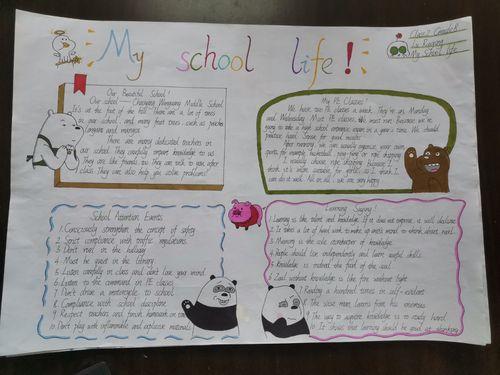 My school life!
Class 2 Grade 8
My School life
Our Beautiful School!
Our school — Chaoyang Middle School.
It's at the foot of the hill. There are a lot of trees
in our school, and many fruit trees, such as peaches
and mangos.
There are many dedicated teachers in
our school. They carefully impart knowledge to us.
They are like friends. You can talk to them after
class. They can also help you solve problems!
My PE Classes!
We have two PE classes a week. They're on Monday
and Wednesday. Most PE classes, we must run. Because we're
going to take a high school entrance exam in a year's time. We should
practice hard. Strive for good results!
After running, we can usually organize our own
sports, for example: basketball, ping-pong or rope skipping.
I usually choose rope skipping. Because I
think it's more suitable for girls, so I think I
can do it well. All in all, we are very happy.
School Attention Events
1. Consciously strengthen the concept of safety
2. Strict compliance with traffic regulations
3. Don't run in the hallway
4. Must be quiet in the library
5. Listen carefully in class and don't let your mind
6. Listen to the command in PE classes
7. Don't drive a motorcycle to school
8. Compliance with school discipline
9. Respect teachers and finish homework on time
10. Don't play with inflammable and explosive materials
Learning Saying!
1. Learning is the talent and knowledge. If it does not improve, it will decline
2. It takes a lot of hard work to make up one's mind to think about
3. Memory is the sole of knowledge
4. People should live independently and learn useful skills.
5. Knowledge is instead the fuel of the soul
6. Zeal without knowledge is like fire without light
7. Reading a hundred times is self-evident
8. The wise man learns from his enemies
9. The way to acquire knowledge is to study hard
10. It shows that learning should be good at thinking